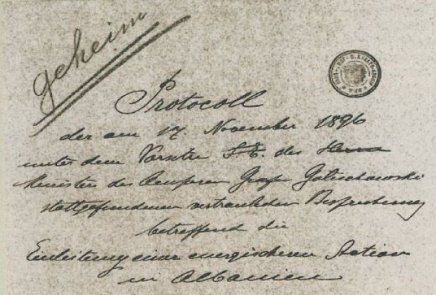 geheim
Protocoll
der am 17. November 1896
unter dem Vorsitze S. E. des Herrn
Ministers des Aeussern Graf Goluchowski
stattgefundenen vertraulichen Besprechung
betreffend die
Einleitung einer energischeren Action
in Albanien